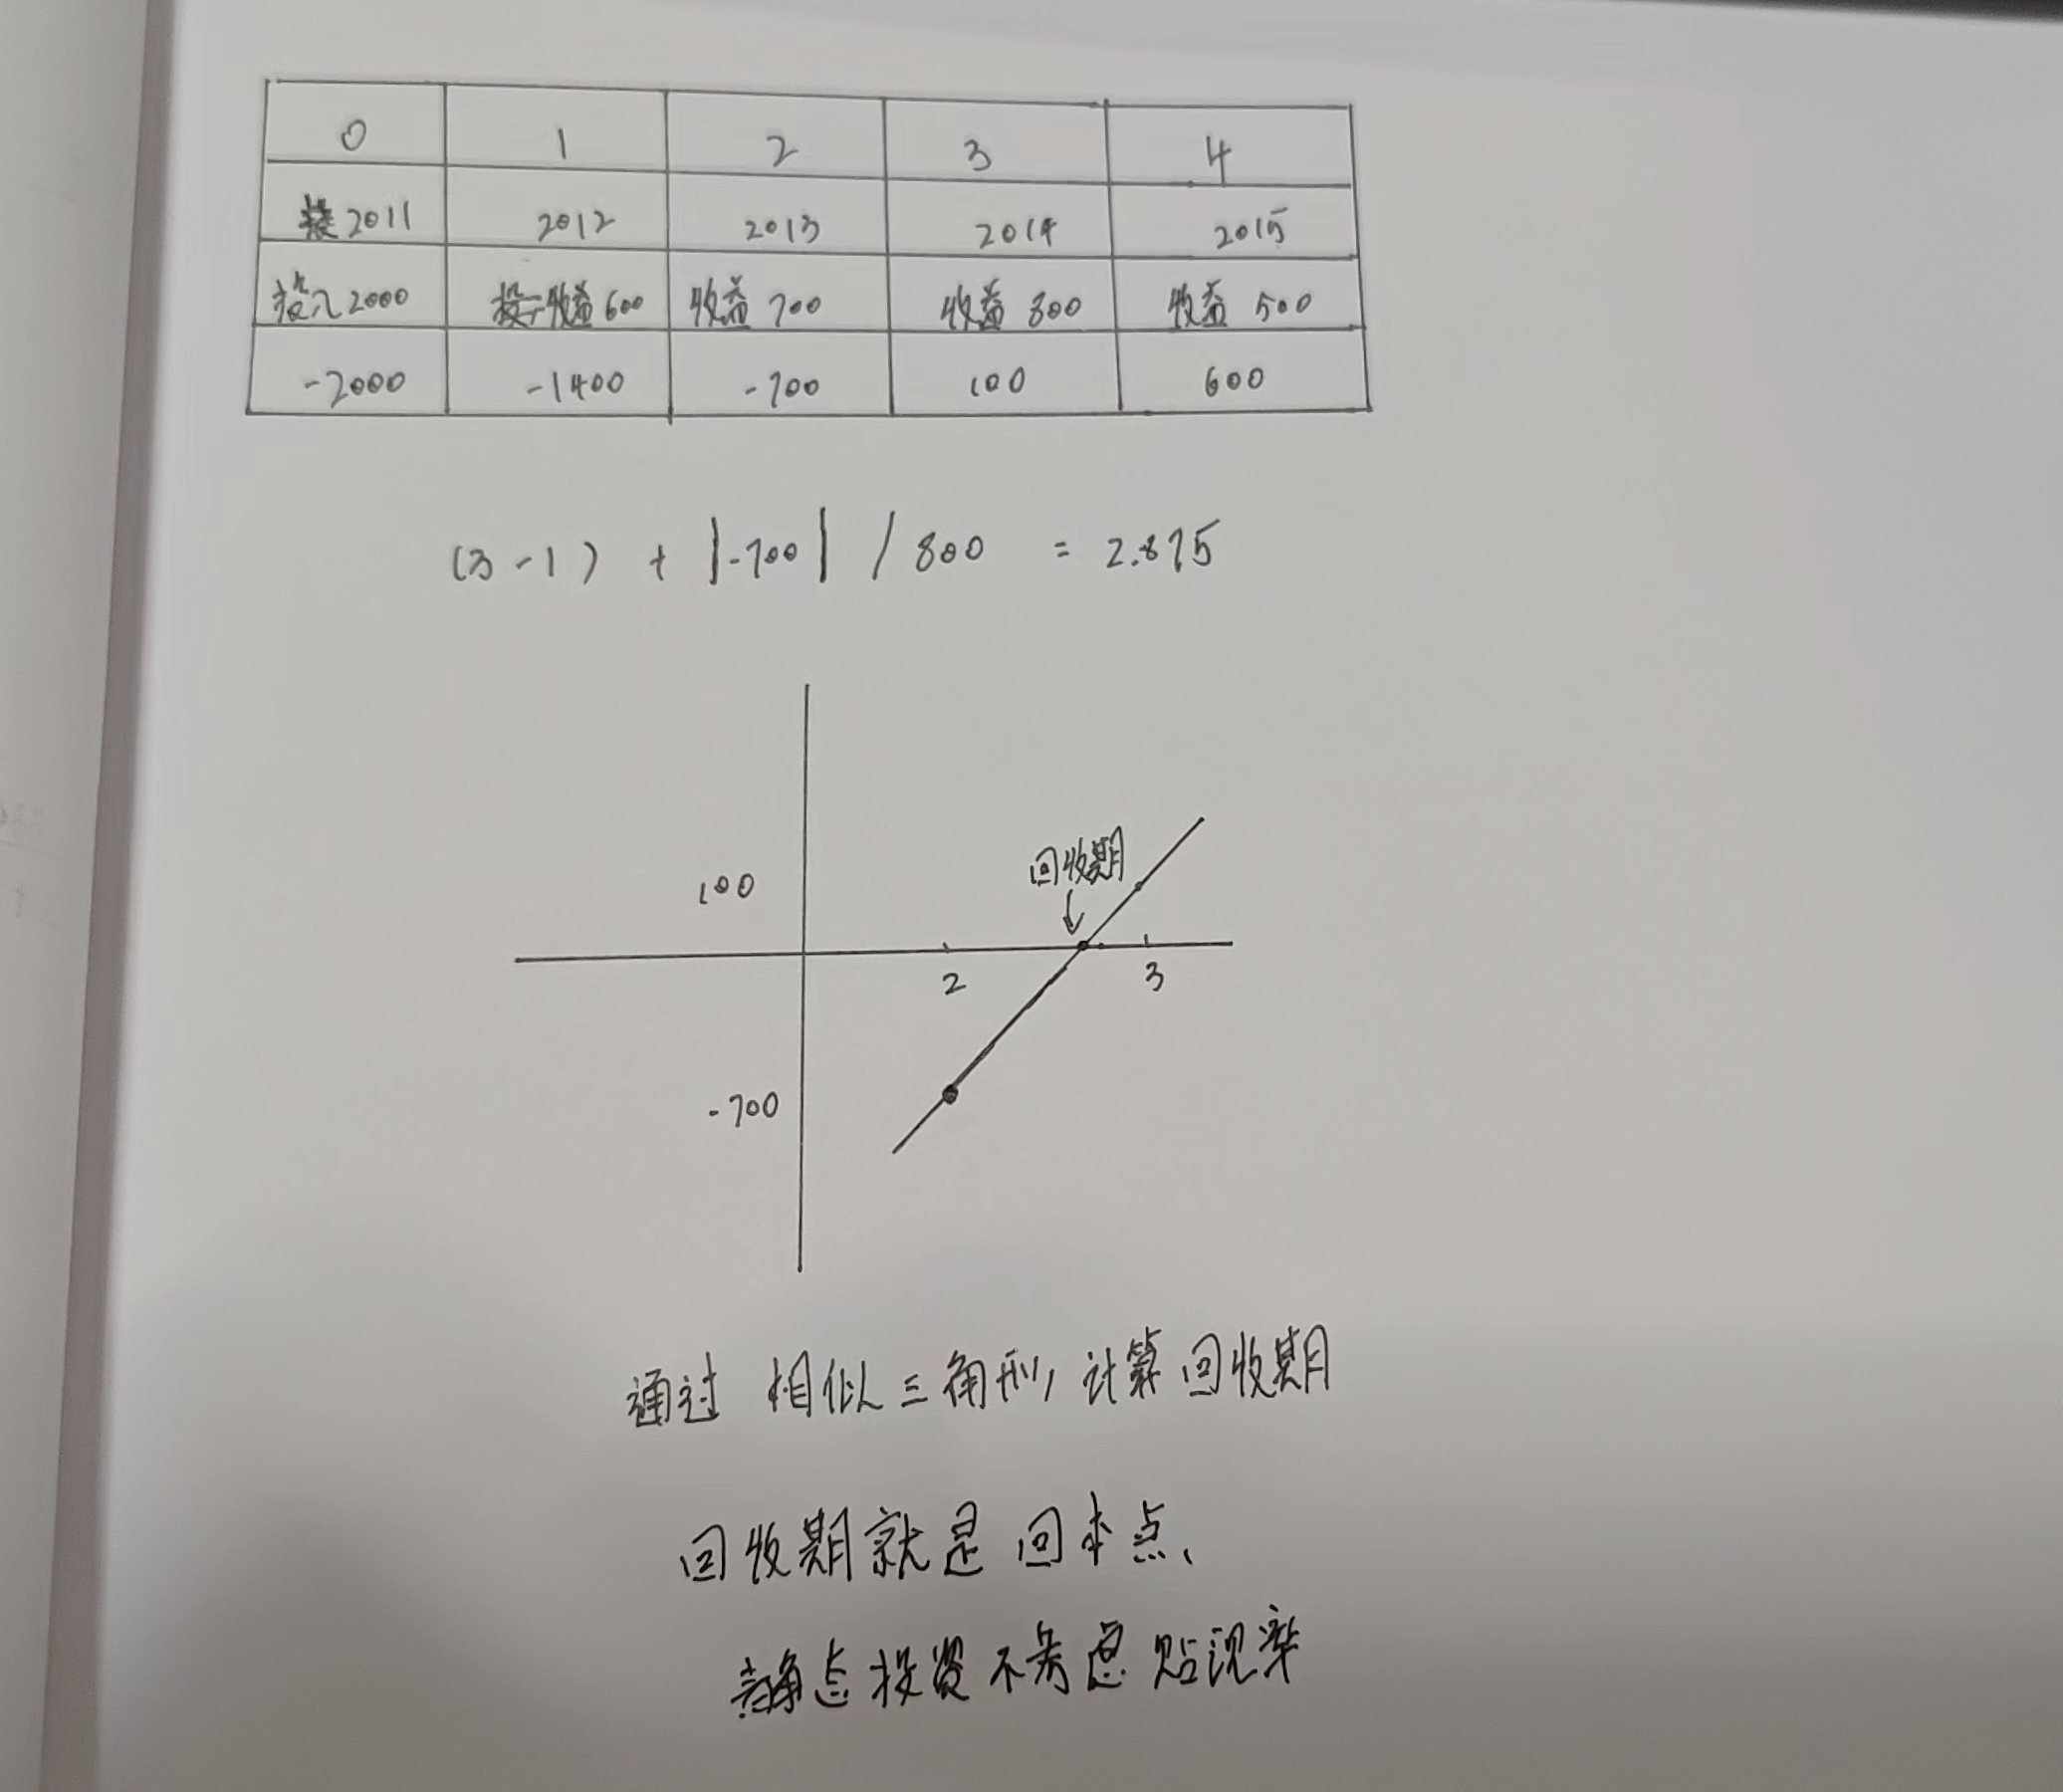 0 1 2 3 4
2011 2012 2013 2014 2015
投入2000 收益600 收益 700 收益 800 收益 500
-2000 -1400 -700 100 600
(3-1) + |-700| / 800 = 2.875
回收期
100
2 3
-700
通过 相似三角形,计算回收期
回收期就是回本点、
静态投资不考虑贴现率